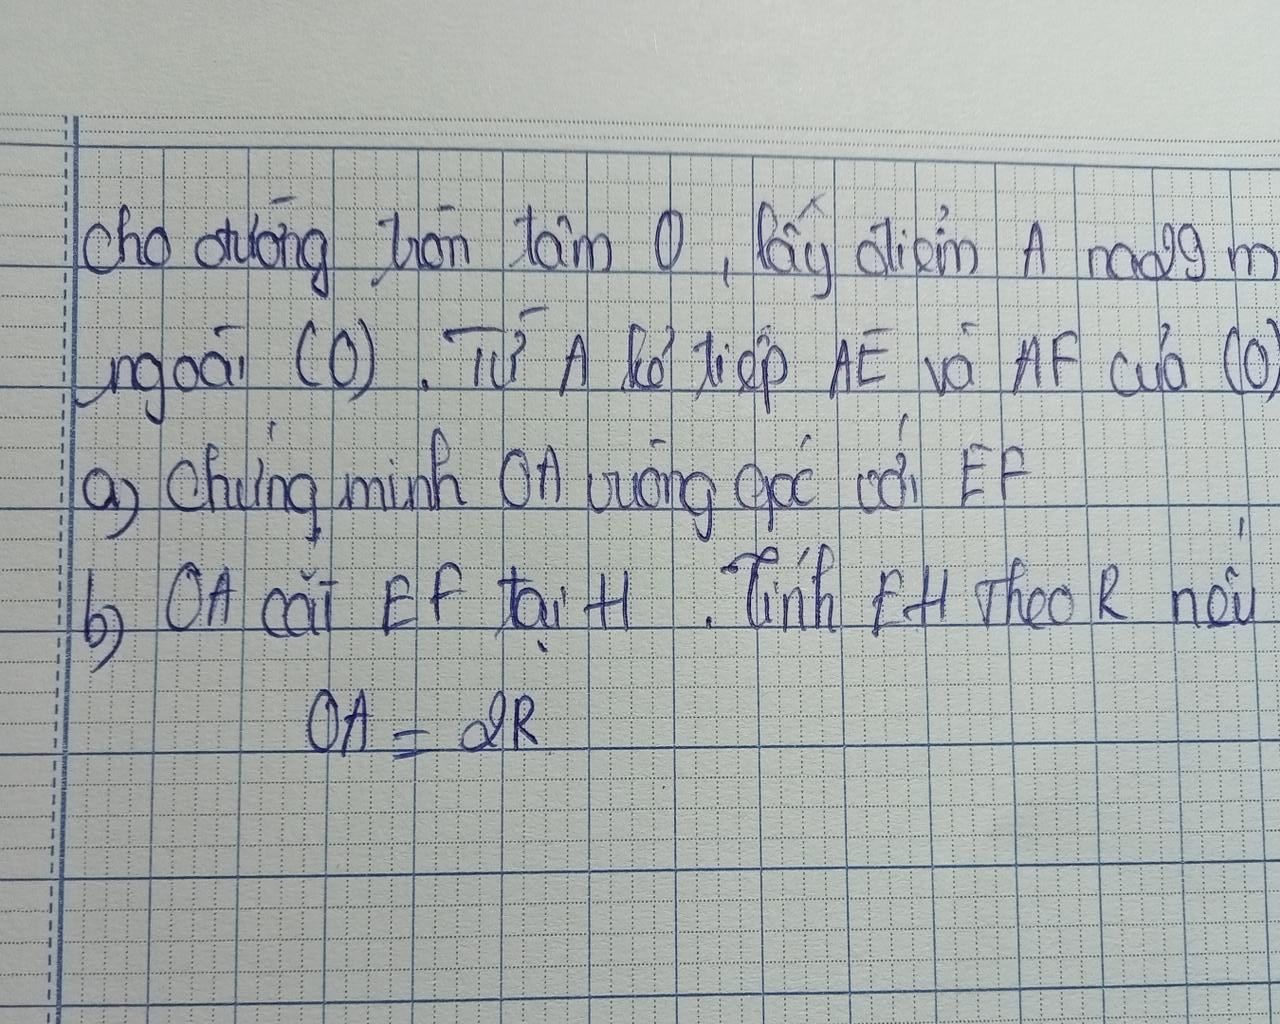 cho đường tròn tâm O, lấy điểm A
ngoài (O). Từ A kẻ tiếp AE và AF của (O)
a) chứng minh OA vuông góc với EF
b) OA cắt EF tại H. Tính EH theo R nếu
OA = 2R